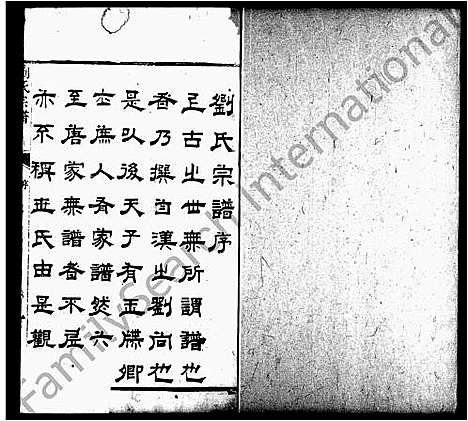 劉氏宗譜序
上古之世無所謂譜也
者乃撰自漢之劉向也
是以後天子有玉牒卿
人有家譜然六
至唐家無譜者不
亦不稱世氏由是觀
劉氏宗譜
序
FamilySearch International